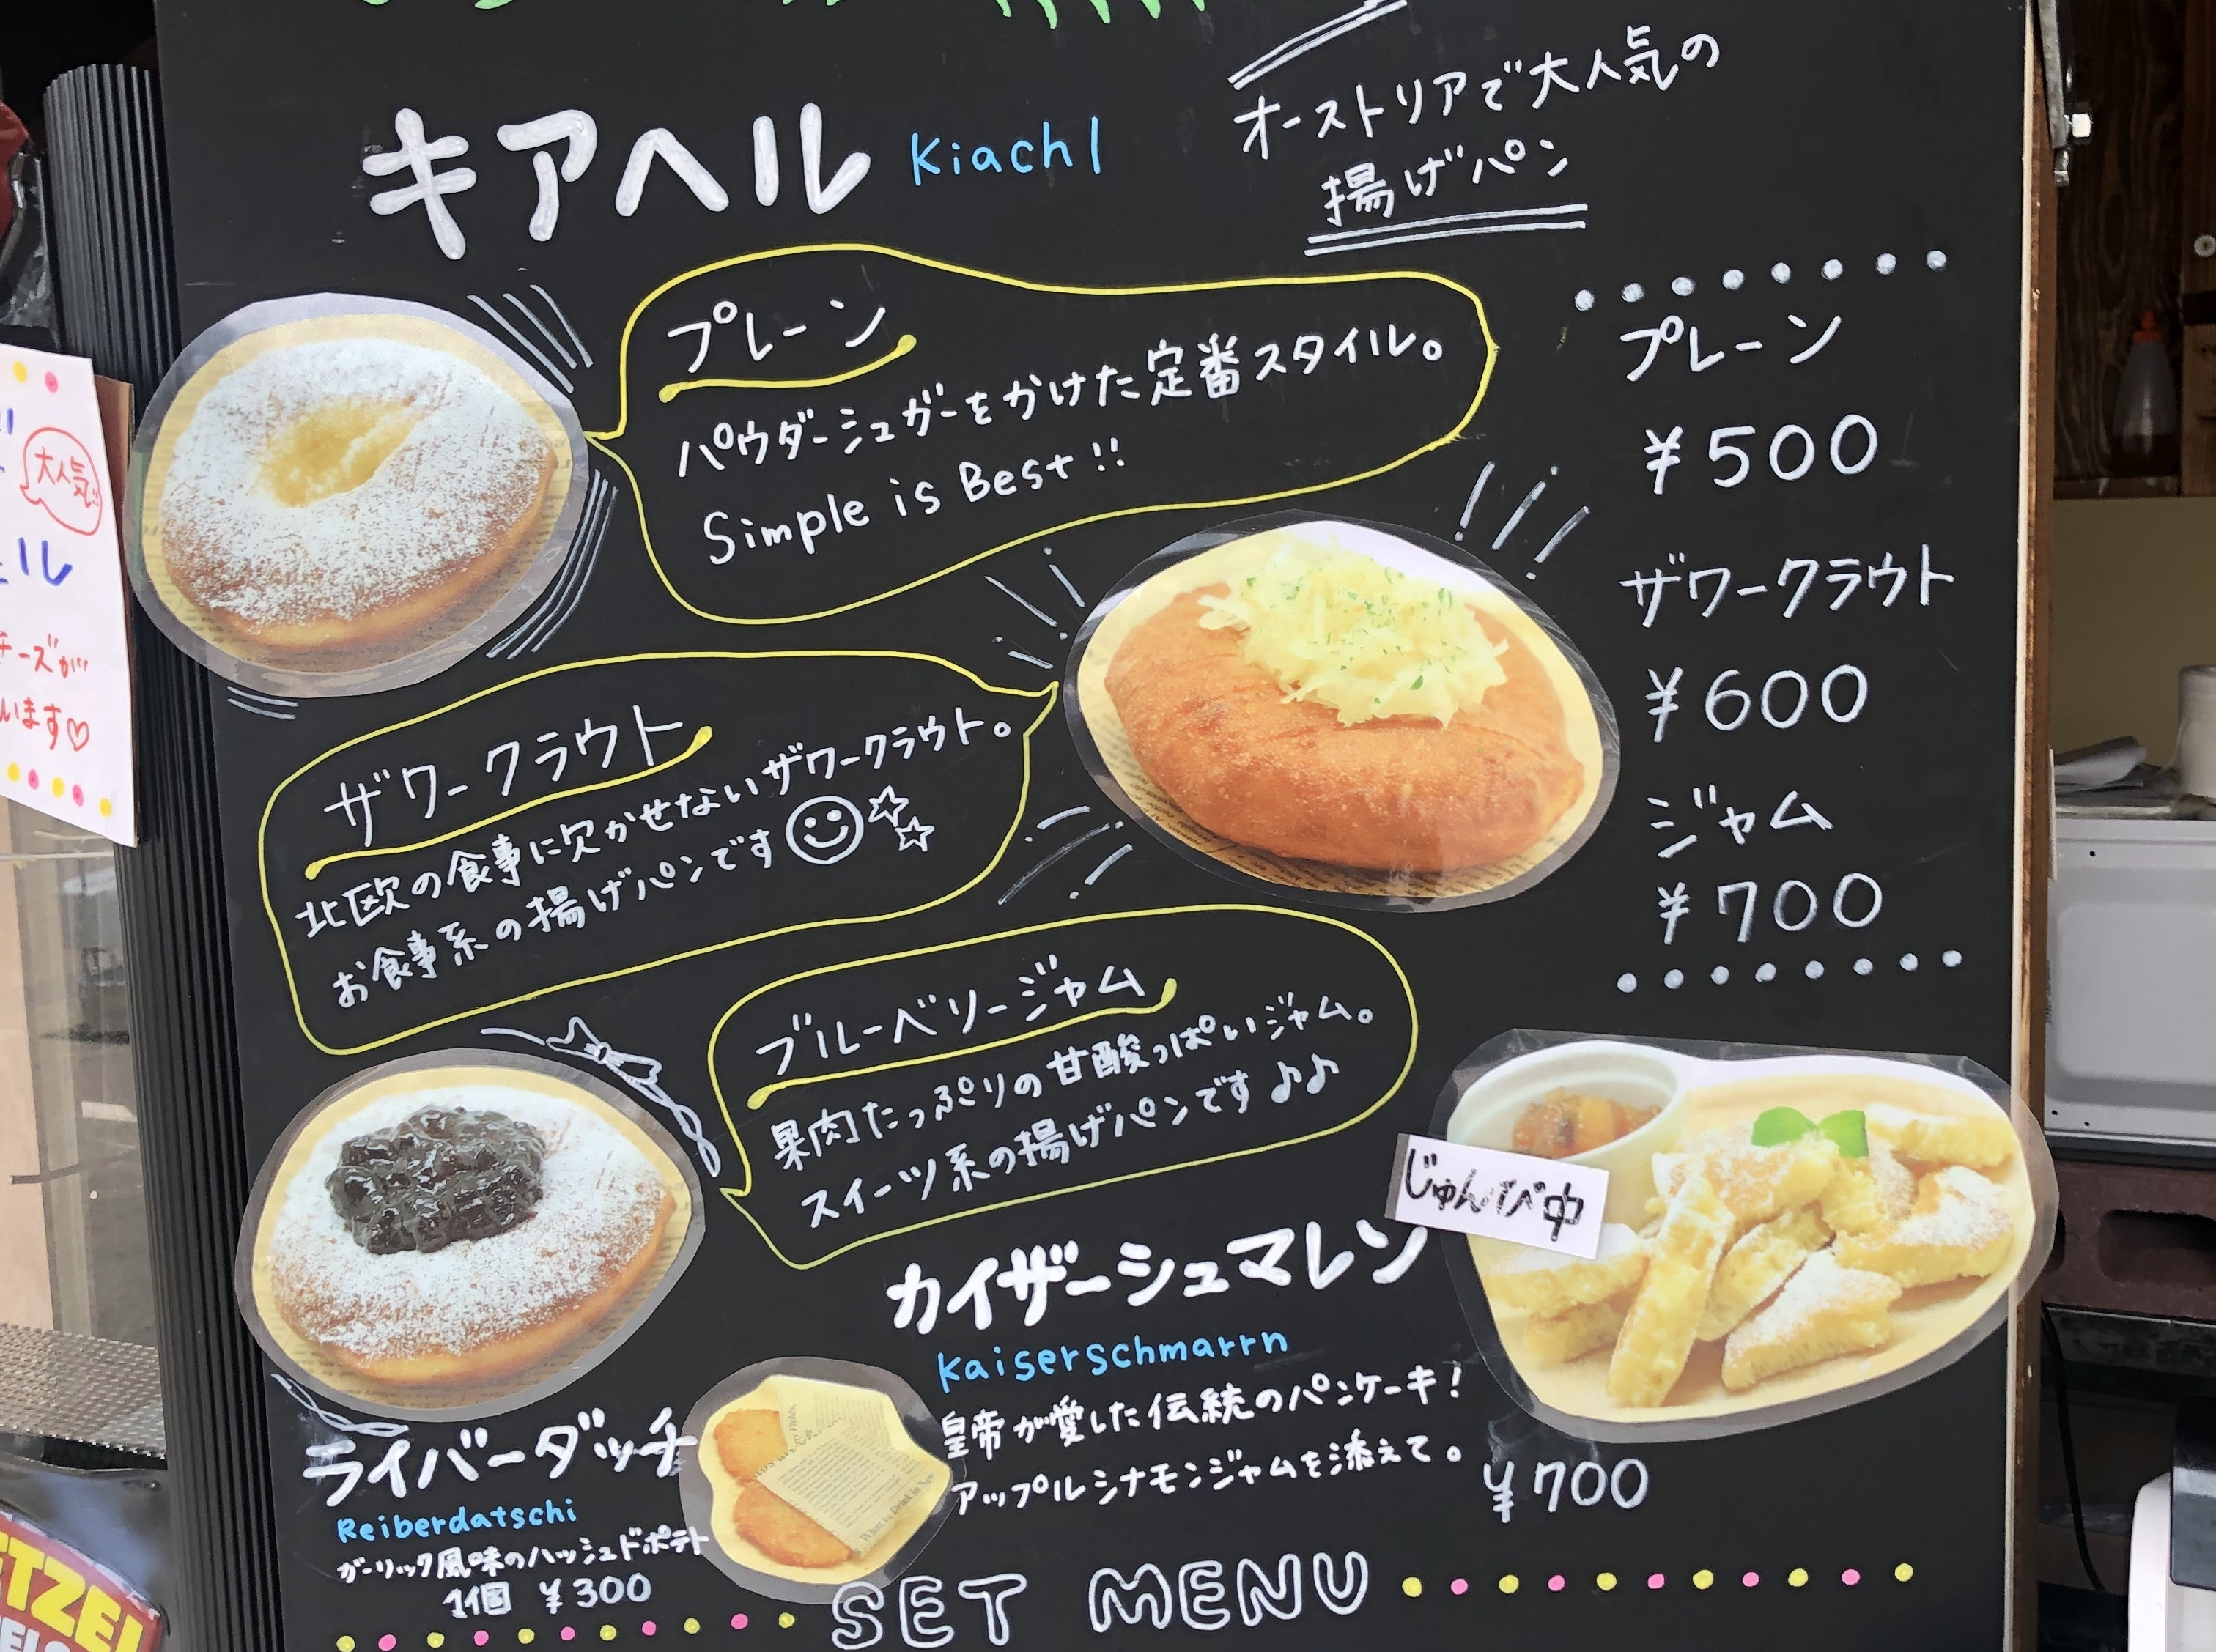 キアヘル Kiachl
オーストリアで大人気の
揚げパン
プレーン
パウダーシュガーをかけた定番スタイル。
Simple is Best!!
プレーン
¥500
ザワークラウト
¥600
ジャム
¥700
ザワークラウト
北欧の食事に欠かせないザワークラウト。
お食事系の揚げパンです
ブルーベリージャム
果肉たっぷりの甘酸っぱいジャム。
スイーツ系の揚げパンです♪♪
じゅんび中
カイザーシュマレン
Kaiserschmarrn
皇帝が愛した伝統のパンケーキ!
アップルシナモンジャムを添えて。
¥700
ライバーダッチ
Reiberdatschi
ガーリック風味のハッシュドポテト
1個 ¥300
SET MENU
大人気
ル
チーズが
います♡